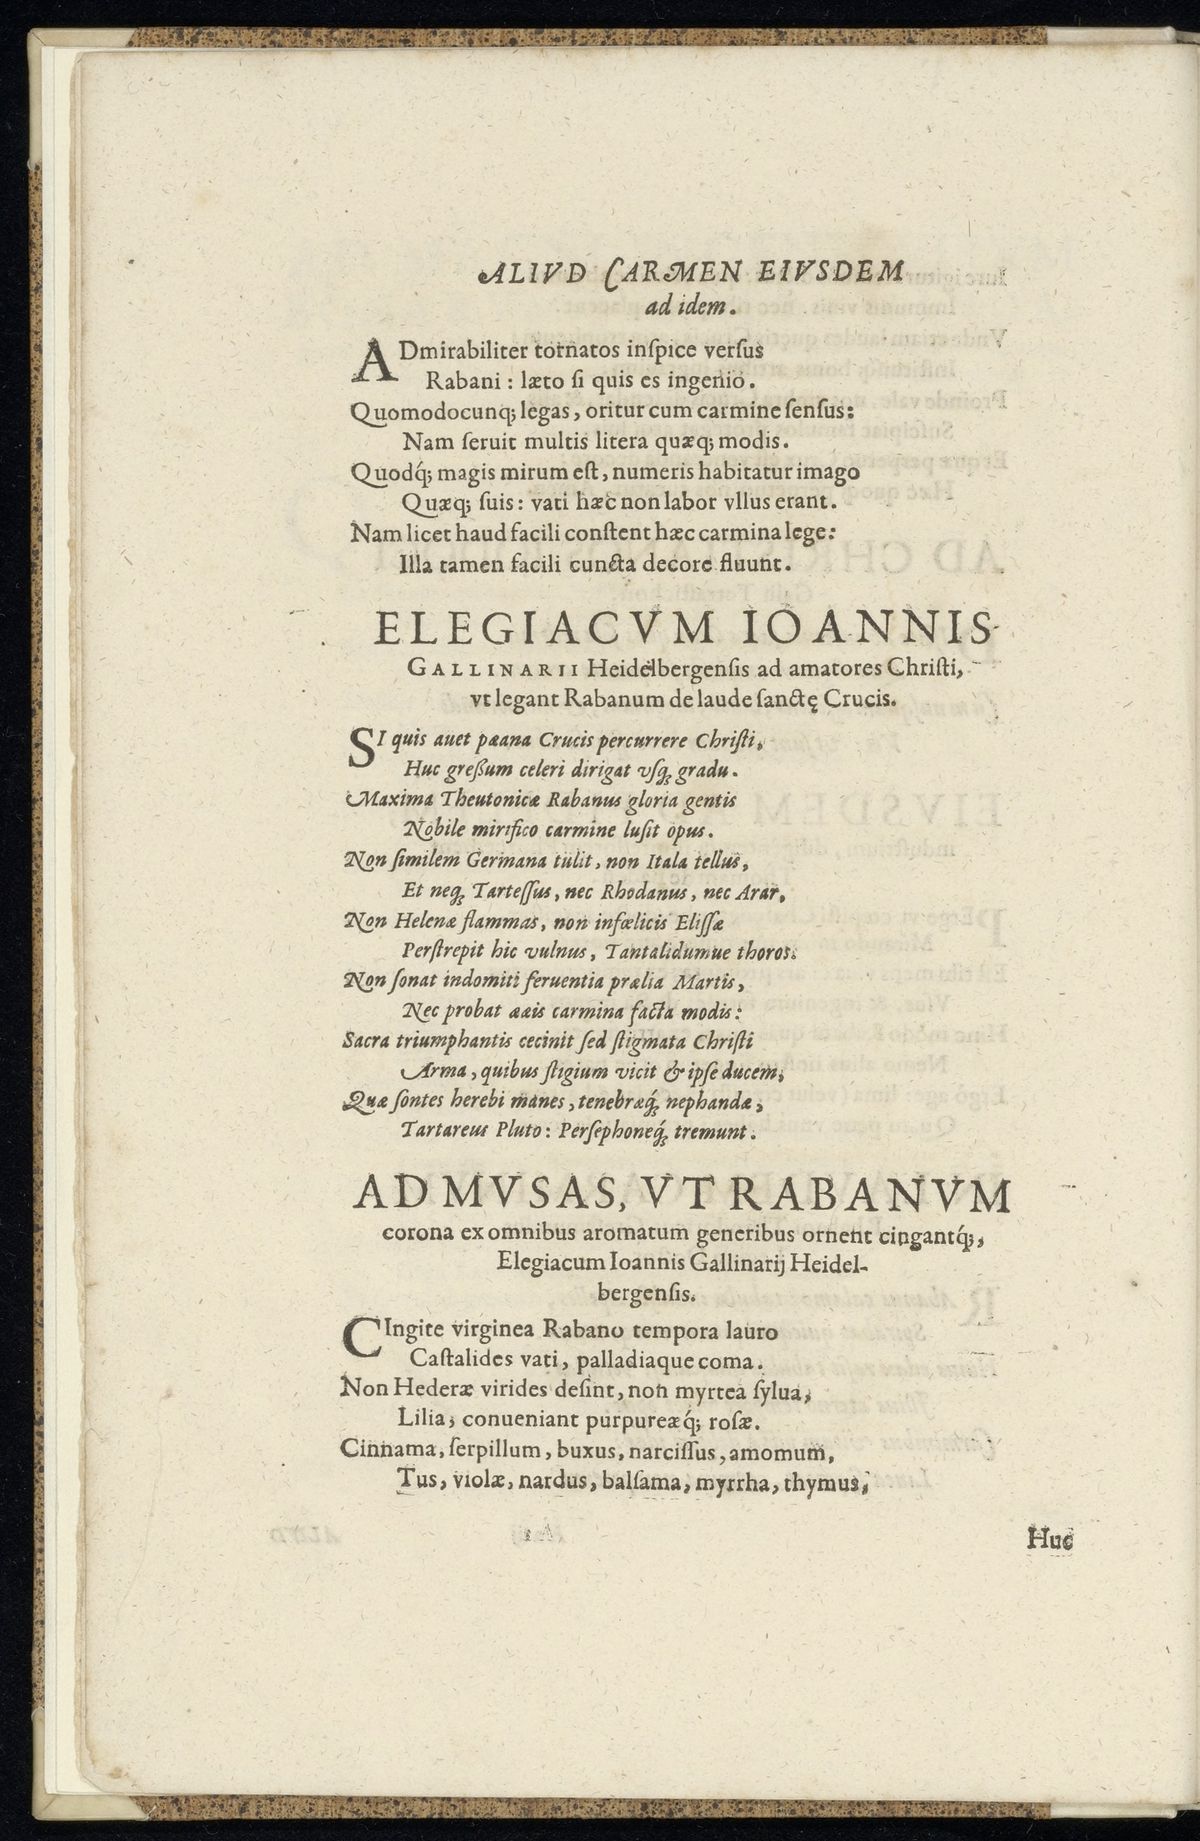 ALIVD CARMEN EIVSDEM
ad idem.
ADmirabiliter tornatos inſpice verſus
Rabani : læto ſi quis es ingenio.
Quomodocunq; legas, oritur cum carmine ſenſus:
Nam ſeruit multis litera quæq; modis.
Quodq́; magis mirum eſt, numeris habitatur imago
Quæq; ſuis: vati hæc non labor vllus erant.
Nam licet haud facili conſtent hæc carmina lege:
Illa tamen facili cuncta decore fluunt.
ELEGIACVM IOANNIS
GALLINARII Heidelbergenſis ad amatores Chriſti,
vt legant Rabanum de laude ſanctę Crucis.
SI quis auet pæana Crucis percurrere Chriſti,
Huc greßum celeri dirigat vſq; gradu.
Maxima Theutonicæ Rabanus gloria gentis
Nobile mirifico carmine luſit opus.
Non ſimilem Germana tulit, non Itala tellus,
Et neq; Tarteſſus, nec Rhodanus, nec Arar,
Non Helenæ flammas, non infœlicis Eliſſæ
Perſtrepit hic vulnus, Tantalidumue thoros:
Non ſonat indomiti feruentia prælia Martis,
Nec probat ææis carmina facta modis:
Sacra triumphantis cecinit ſed ſtigmata Chriſti
Arma, quibus ſtigium vicit & ipſe ducem,
Quæ ſontes herebi manes, tenebræq́; nephandæ,
Tartareus Pluto: Perſephoneq́; tremunt.
AD MVSAS, VT RABANVM
corona ex omnibus aromatum generibus ornent cingantq́;,
Elegiacum Ioannis Gallinarij Heidel-
bergenſis.
CIngite virginea Rabano tempora lauro
Caſtalides vati, palladiaque coma.
Non Hederæ virides deſint, non myrtea ſylua,
Lilia, conueniant purpureæq́; roſæ.
Cinnama, ſerpillum, buxus, narciſſus, amomum,
Tus, violæ, nardus, balſama, myrrha, thymus,
Huc